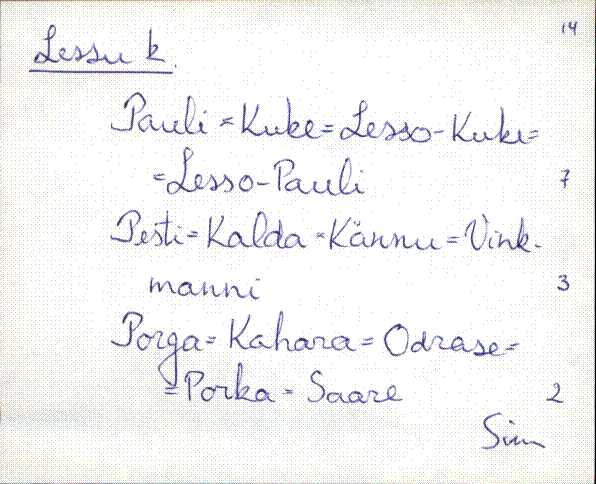 14
Lessu k.
Pauli = Kuke = Lesso-Kuke =
= Lesso-Pauli 7
Pesti = Kalda = Kännu = Vink-
manni 3
Porga = Kahara = Odrase =
= Porka = Saare 2